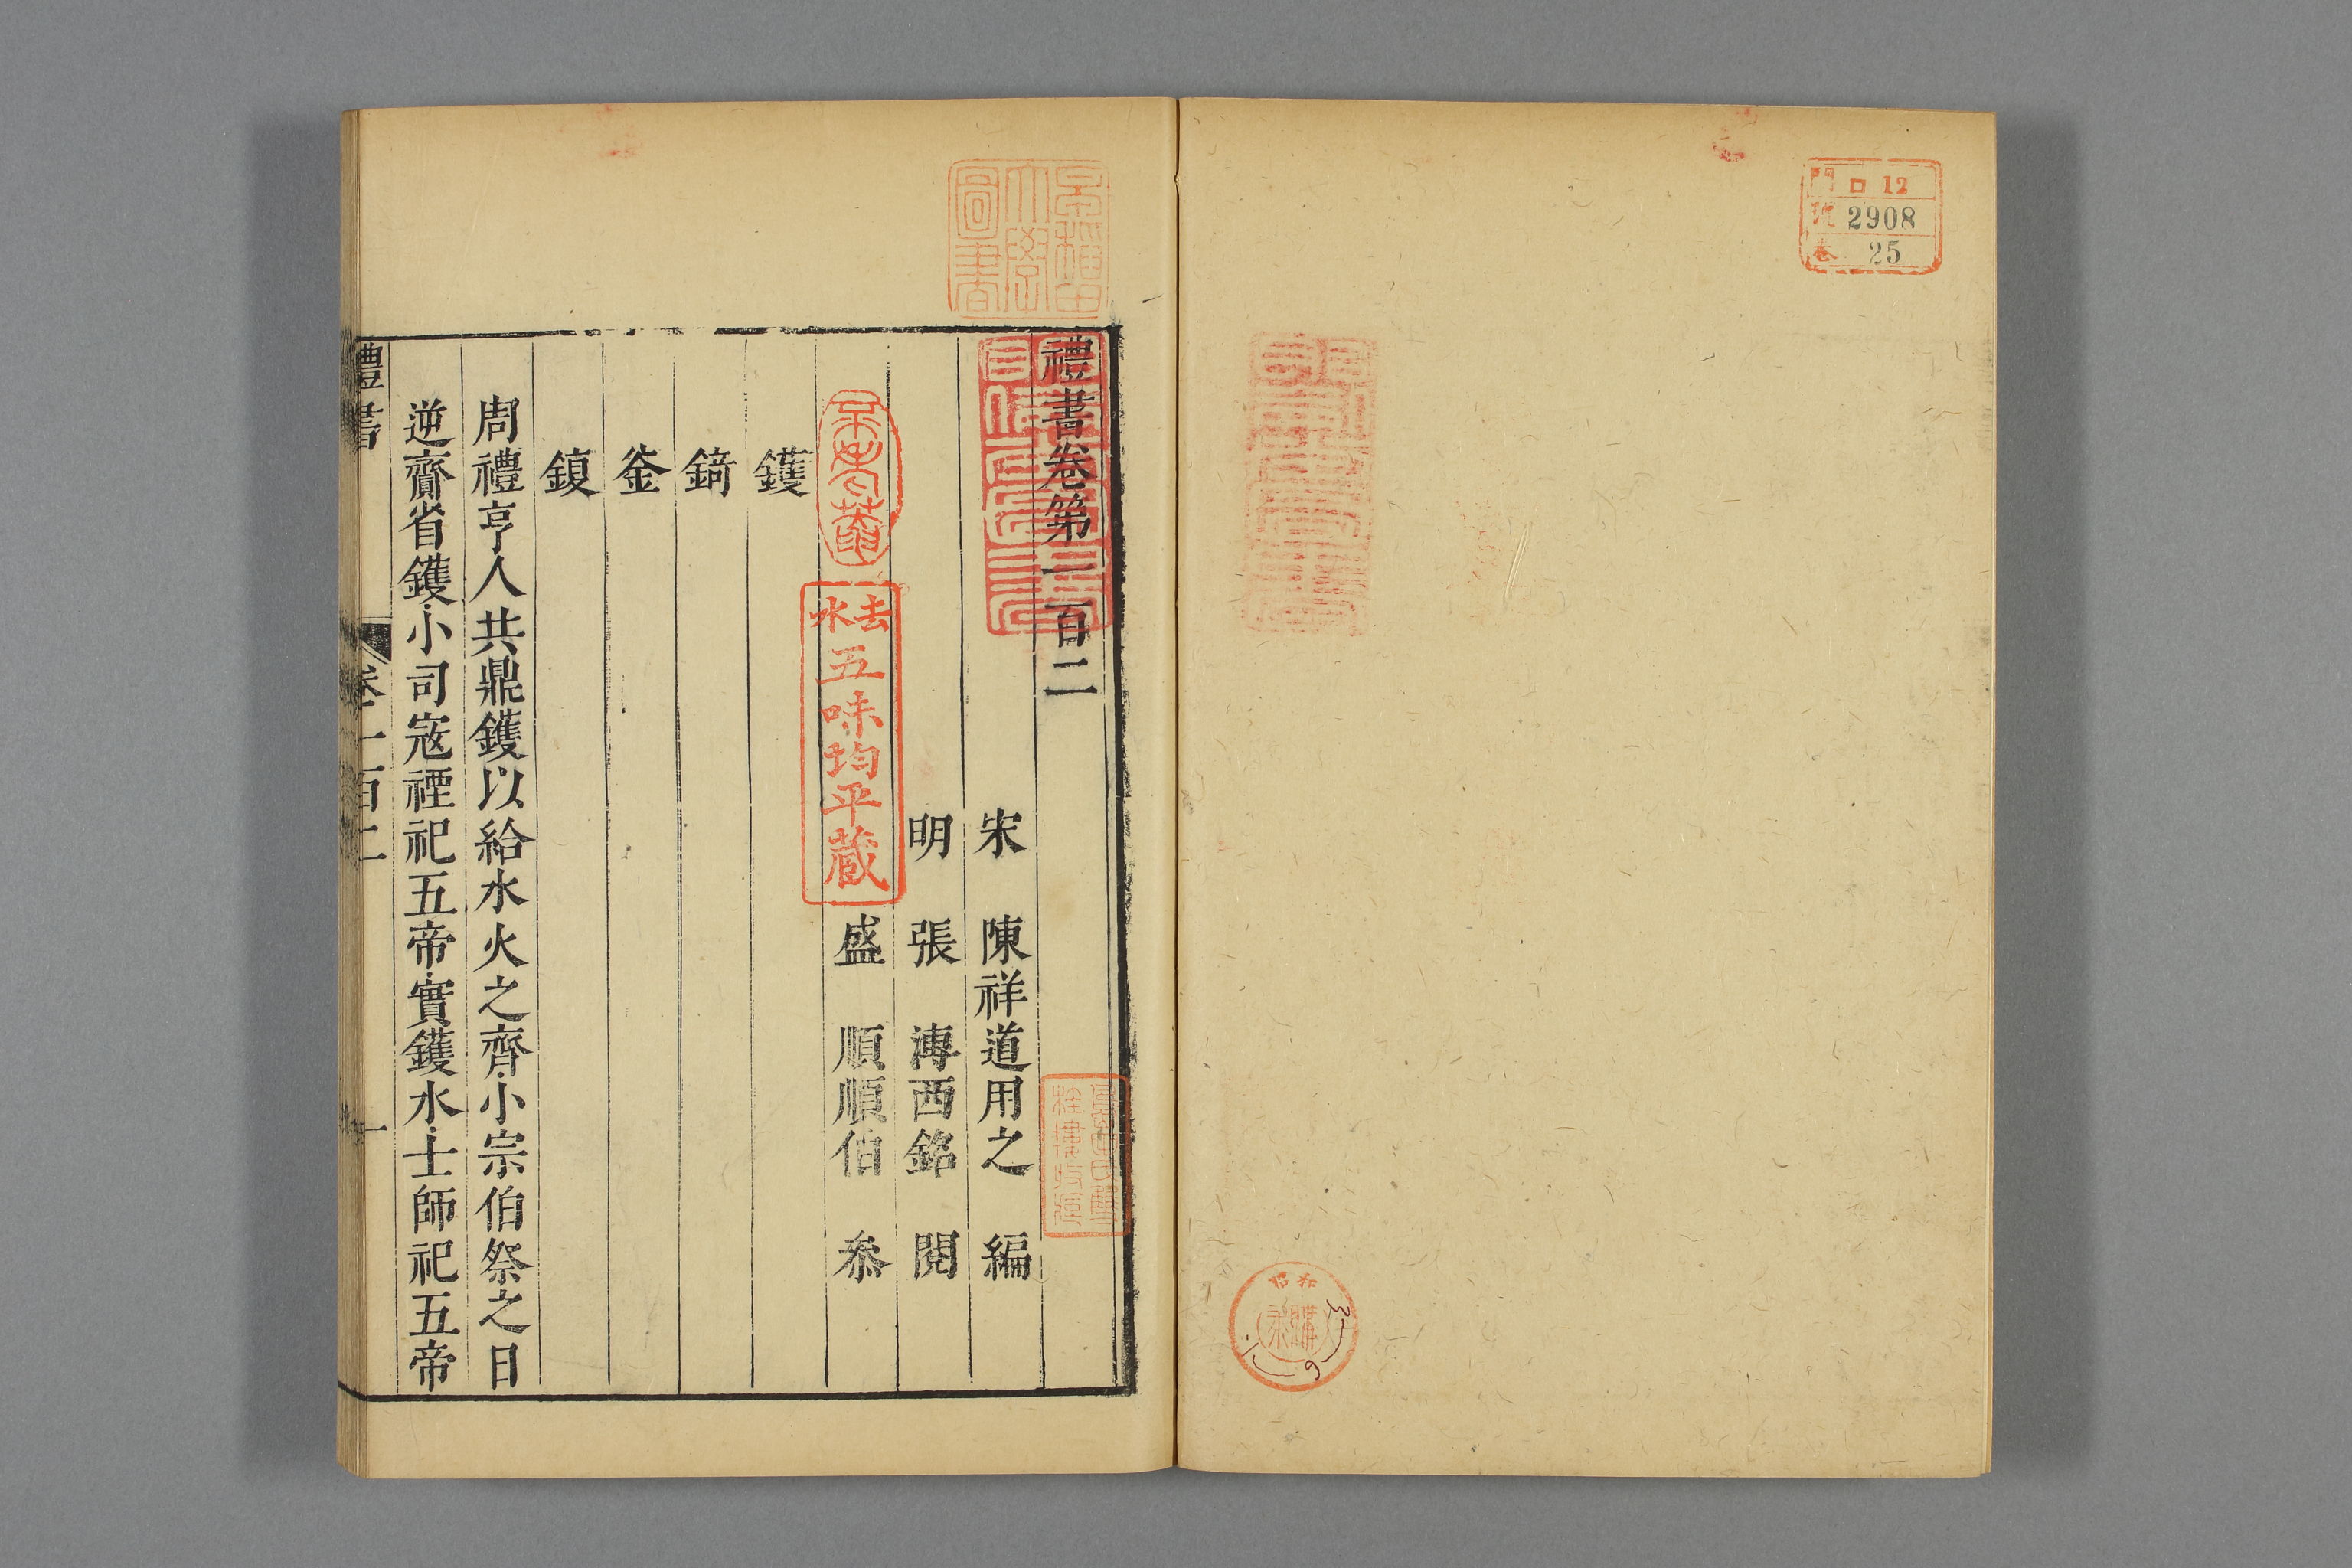 門 ロ 12
號 2908
卷 25
昭和
購求
早稲田
大學
圖書
禮書卷第一百二
宋 陳祥道用之 編
明 張 溥西銘 閱
盛 順順伯 叅
去水五味均平蔵
鑊
錡
釡
鍑
周禮亨人共鼎鑊以給水火之齊小宗伯祭之日
逆齍省鑊小司宼禋祀五帝實鑊水士師祀五帝
禮書 卷一百二 一